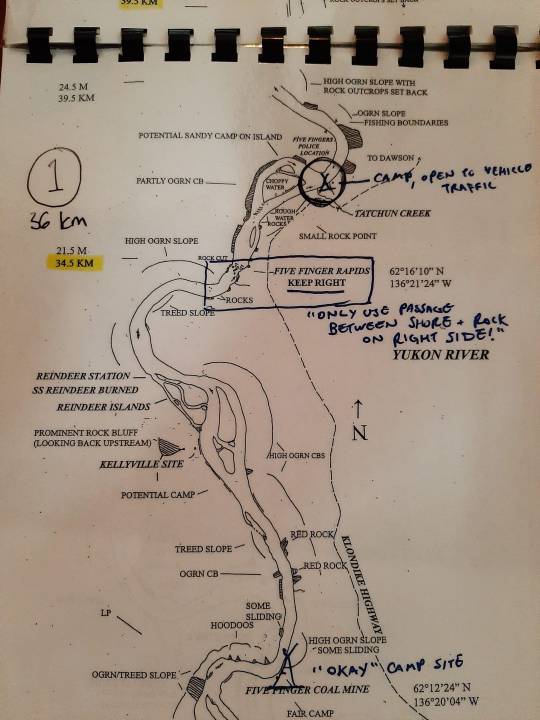 39.5 KM
24.5 M
39.5 KM
HIGH OGRN SLOPE WITH
ROCK OUTCROPS SET BACK
OGRN SLOPE
FISHING BOUNDARIES
POTENTIAL SANDY CAMP ON ISLAND
FIVE FINGERS
POLICE
LOCATION
TO DAWSON
1
36 km
PARTLY OGRN CB
CHOPPY
WATER
CAMP, OPEN TO VEHICLE
TRAFFIC
ROUGH
WATER
ROCKS
TATCHUN CREEK
SMALL ROCK POINT
HIGH OGRN SLOPE
21.5 M
34.5 KM
ROCK CUT
FIVE FINGER RAPIDS
KEEP RIGHT
62°16'10" N
136°21'24" W
ROCKS
TREED SLOPE
"ONLY USE PASSAGE
BETWEEN SHORE + ROCK
ON RIGHT SIDE!"
YUKON RIVER
REINDEER STATION
SS REINDEER BURNED
REINDEER ISLANDS
N
PROMINENT ROCK BLUFF
(LOOKING BACK UPSTREAM)
KELLYVILLE SITE
HIGH OGRN CBS
POTENTIAL CAMP
RED ROCK
TREED SLOPE
RED ROCK
OGRN CB
KLONDIKE HIGHWAY
LP
SOME
SLIDING
HOODOOS
HIGH OGRN SLOPE
SOME SLIDING
OGRN/TREED SLOPE
"OKAY" CAMP SITE
FIVE FINGER COAL MINE
62°12'24" N
136°20'04" W
FAIR CAMP